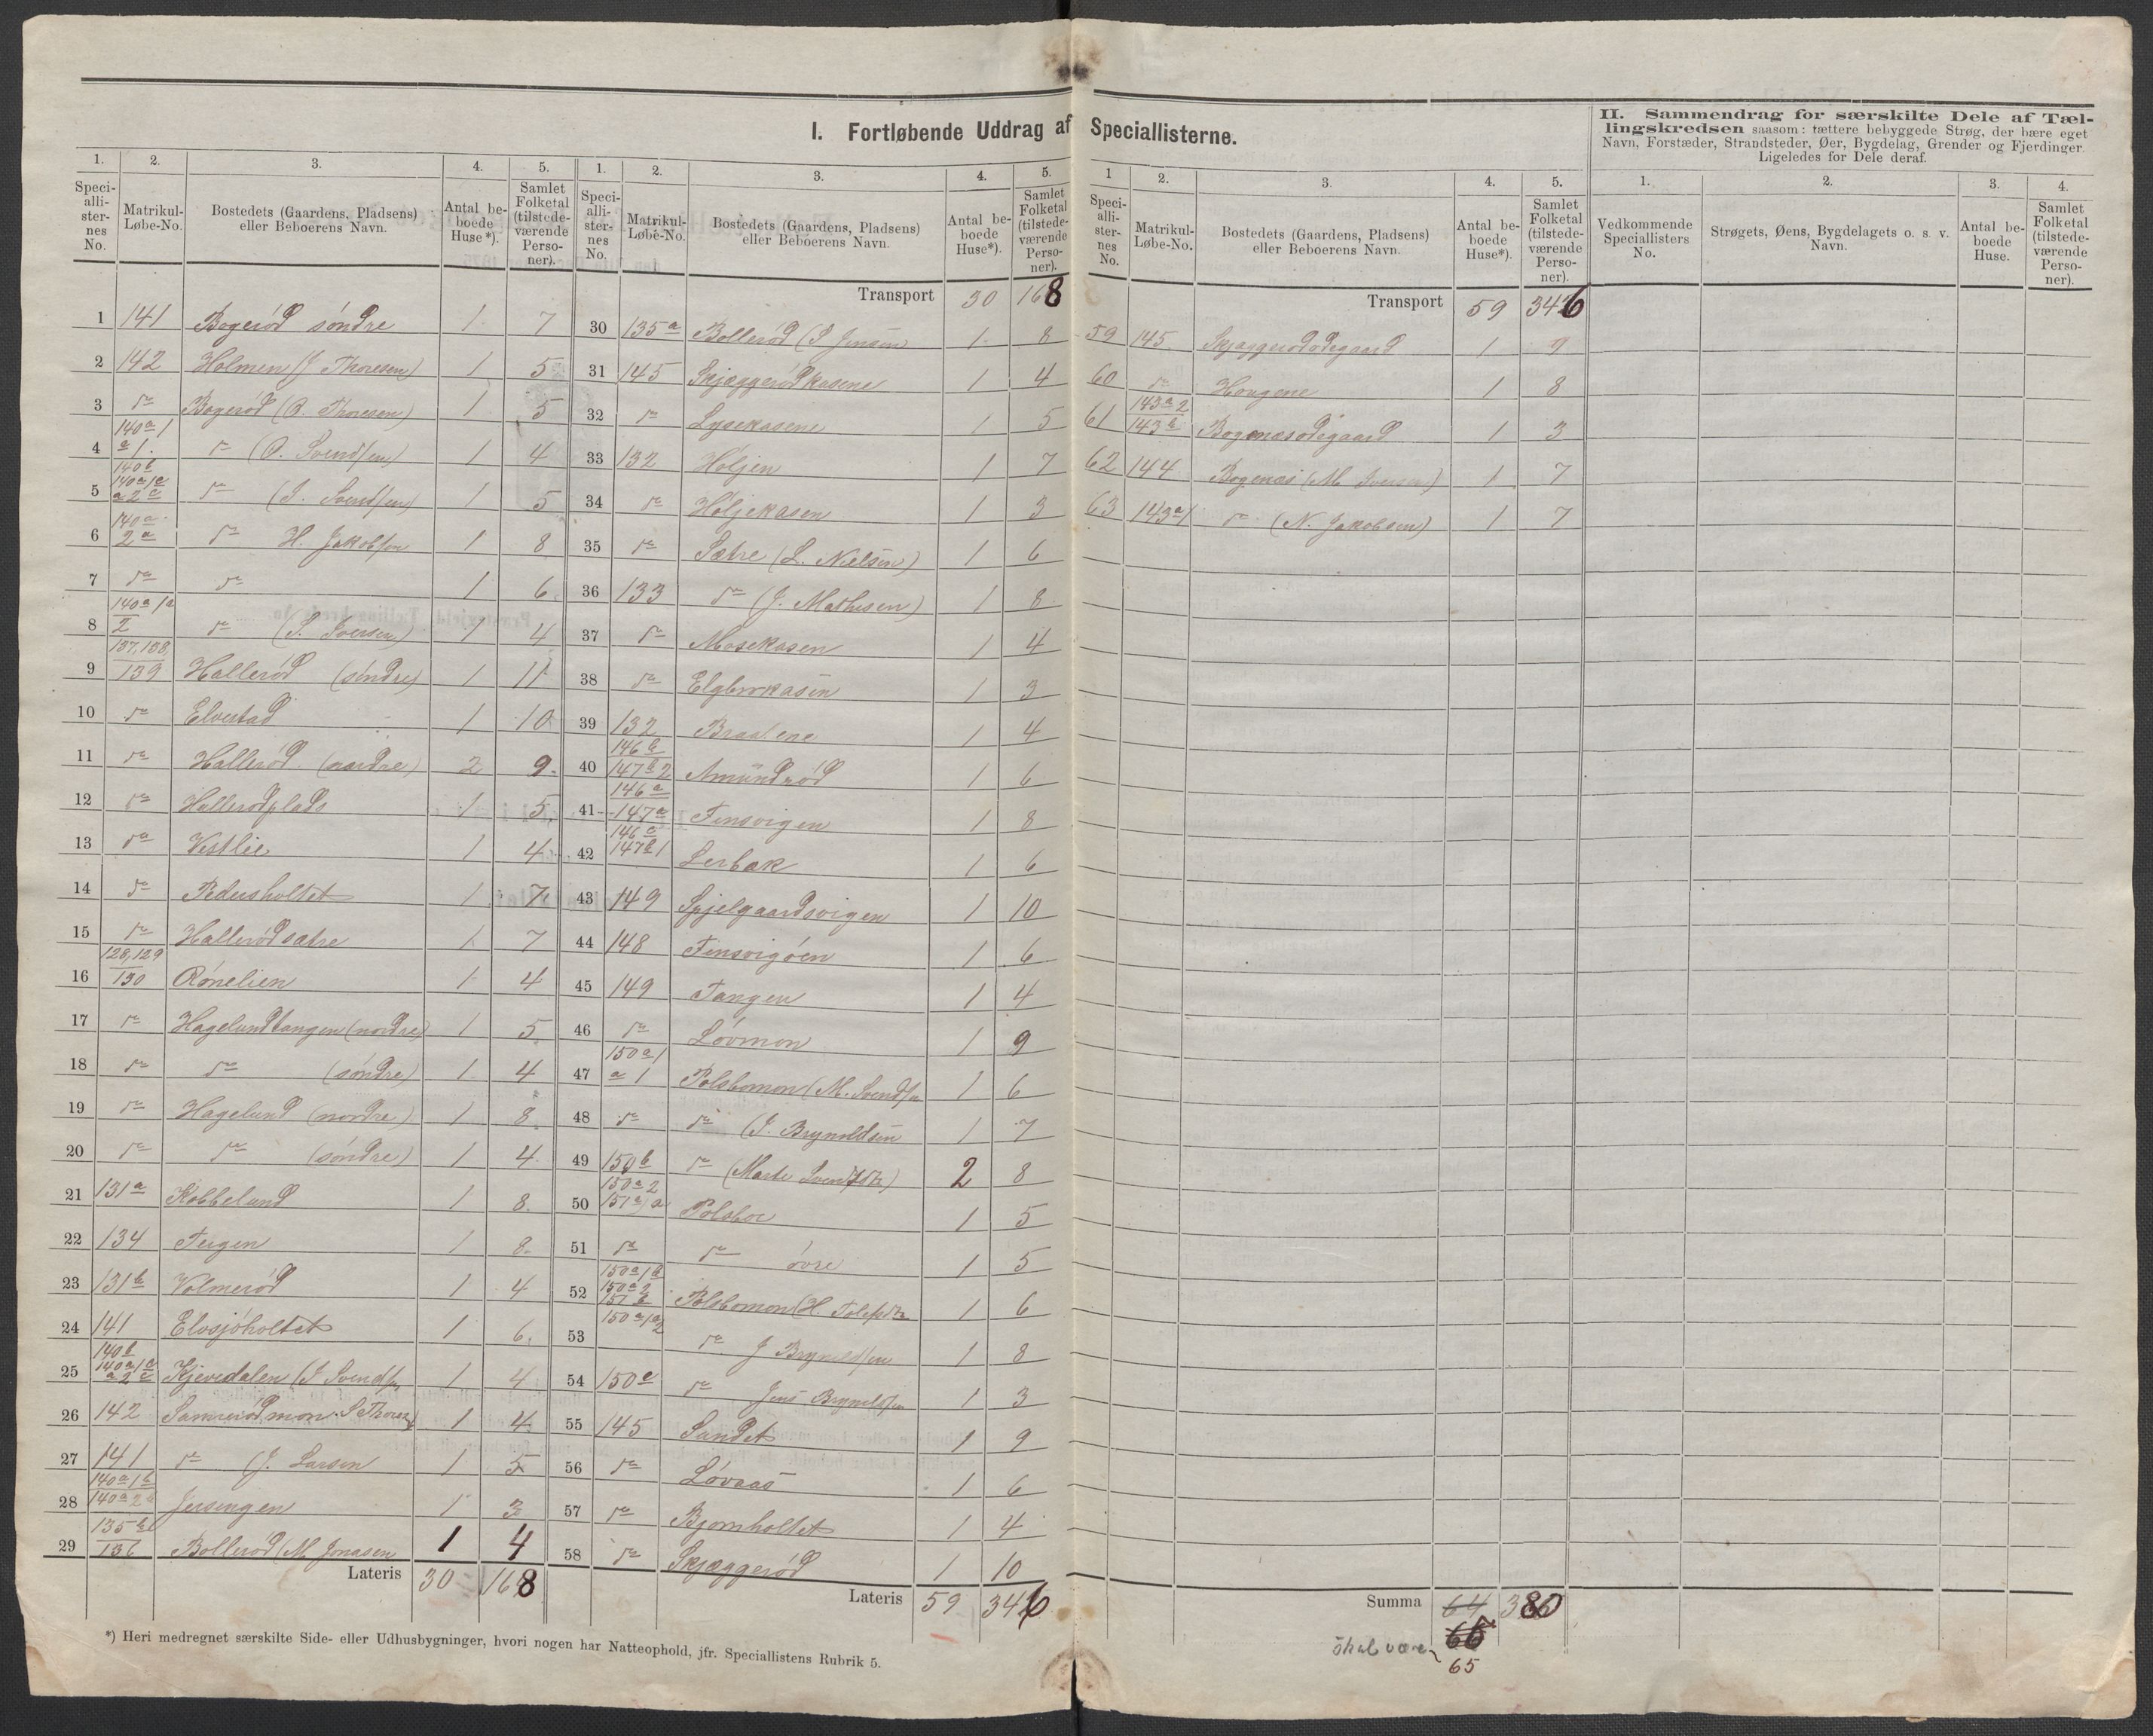 I. Fortløbende Uddrag af Speciallisterne.
II. Sammendrag for særskilte Dele af Tællingskredsen saasom: tættere bebyggede Strøg, der bære eget
Navn, Forstæder, Strandsteder, Øer, Bygdelag, Grender og Fjerdinger.
Ligeledes for Dele deraf.
1. 2. 3. 4. 5.
Speciallisternes No. Matrikul-Løbe-No. Bostedets (Gaardens, Pladsens) eller Beboerens Navn. Antal beboede Huse*). Samlet Folketal (tilstedeværende Personer).
1 141 Bogerød søndre 1 7
2 142 Holmen (J Thoresen) 1 5
3 do Bogerød (O. Thoresen) 1 5
4 140a1 a1. do (O. Svendsen) 1 4
5 140b 140a1c a2c do (J. Svendsen) 1 5
6 140a 2a do H. Jakobsen 1 8
7 do do 1 6
8 140a1a 2 do (S. Iversen) 1 4
9 137,138, 139 Hallerød (søndre) 1 11
10 do Elvestad 1 10
11 do Hallerød (nordre) 2 9
12 do Hallerødplads 1 5
13 do Vestlie 1 4
14 do Pedersholtet 1 7
15 do Hallerødsætre 1 7
16 128,129 130 Rønelien 1 4
17 do Hagelundtangen (nordre) 1 5
18 do do (søndre) 1 4
19 do Hagelund (nordre) 1 8
20 do do (søndre) 1 4
21 131a Kobbelund 1 8
22 134 Teigen 1 8
23 131b Volmerød 1 4
24 141 Elvsjøholtet 1 6
25 140b 140a1c a2c Kjeverdalen (J Svends 1 4
26 142 Sannerødmon S Thores 1 4
27 141 do (J. Larsen 1 5
28 140a1b 140a2b Jersengen 1 3
29 135b 136 Bollerød (M. Jonasen 1 4
Lateris 30 168
*) Heri medregnet særskilte Side- eller Udhusbygninger, hvori nogen har Natteophold, jfr. Speciallistens Rubrik 5.
1. 2. 3. 4. 5.
Speciallisternes No. Matrikul-Løbe-No. Bostedets (Gaardens, Pladsens) eller Beboerens Navn. Antal beboede Huse*). Samlet Folketal (tilstedeværende Personer).
Transport 30 168
30 135a Bollerød (S Jensen 1 8
31 145 Skjæggerødkasene 1 4
32 do Lysekasene 1 5
33 132 Høljen 1 7
34 do Høljekasen 1 3
35 do Sætre (L. Nielsen) 1 6
36 133 do (J. Mathisen) 1 8
37 do Mosekasen 1 4
38 do Elgbrokasen 1 3
39 132 Braatene 1 4
40 146b 147b2 Amundrød 1 6
41 146a 147a Tinsvigen 1 8
42 146c 147b1 Lerbæk 1 6
43 149 Spjelgaardsvigen 1 10
44 148 Tinsvigøen 1 6
45 149 Tangen 1 4
46 do Løvmon 1 9
47 150a1 a1 Polsbomon (M. Svends 1 6
48 do do (J. Brynildsen 1 7
49 150b do (Marte Svendsdtr) 2 8
50 150a2 151a1a Polsboe 1 5
51 do do øvre 1 5
52 150a1b 150a2 151b Polsbomon (H. 1 6
53 150a1a2 do J Brynildsen 1 8
54 150c do Jens Brynildsen 1 3
55 145 Sandet 1 9
56 do Løvaas 1 6
57 do Bjornholtet 1 4
58 do Skjæggerød 1 10
Lateris 59 346
1 2. 3. 4. 5.
Speciallisternes No. Matrikul-Løbe-No. Bostedets (Gaardens, Pladsens) eller Beboerens Navn. Antal beboede Huse*). Samlet Folketal (tilstedeværende Personer).
Transport 59 346
59 145 Skjæggerødødegaard 1 9
60 do Hougene 1 8
61 143a2 143b Bogenæsødegaard 1 3
62 144 Bogenæs (M Iversen) 1 7
63 143a1 do (N. Jakobsen) 1 7
Summa 64 380
skal være 66
65
1. 2. 3. 4.
Vedkommende Speciallisters No. Strøgets, Øens, Bygdelagets o. s. v. Navn. Antal beboede Huse. Samlet Folketal (tilstedeværende Personer).